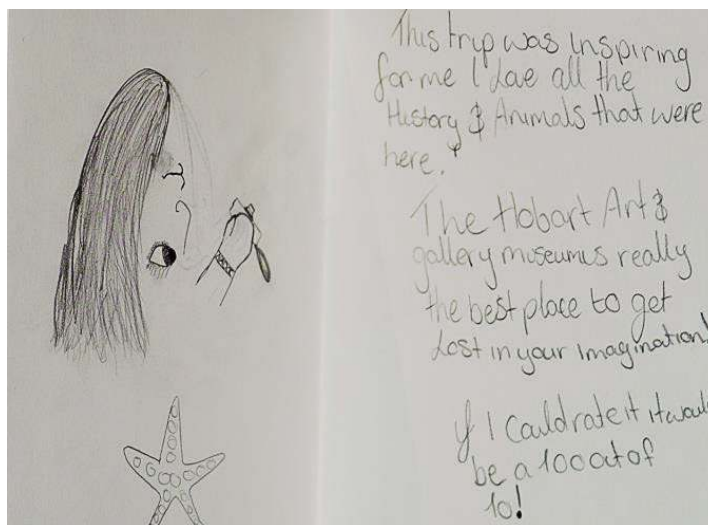 This trip was inspiring
for me I Love all the
History & Animals that were
here.
The Hobart Art &
gallery museumis really
the best place to get
Lost in your imagination!
If I could rate it it would
be a 100 out of
10!